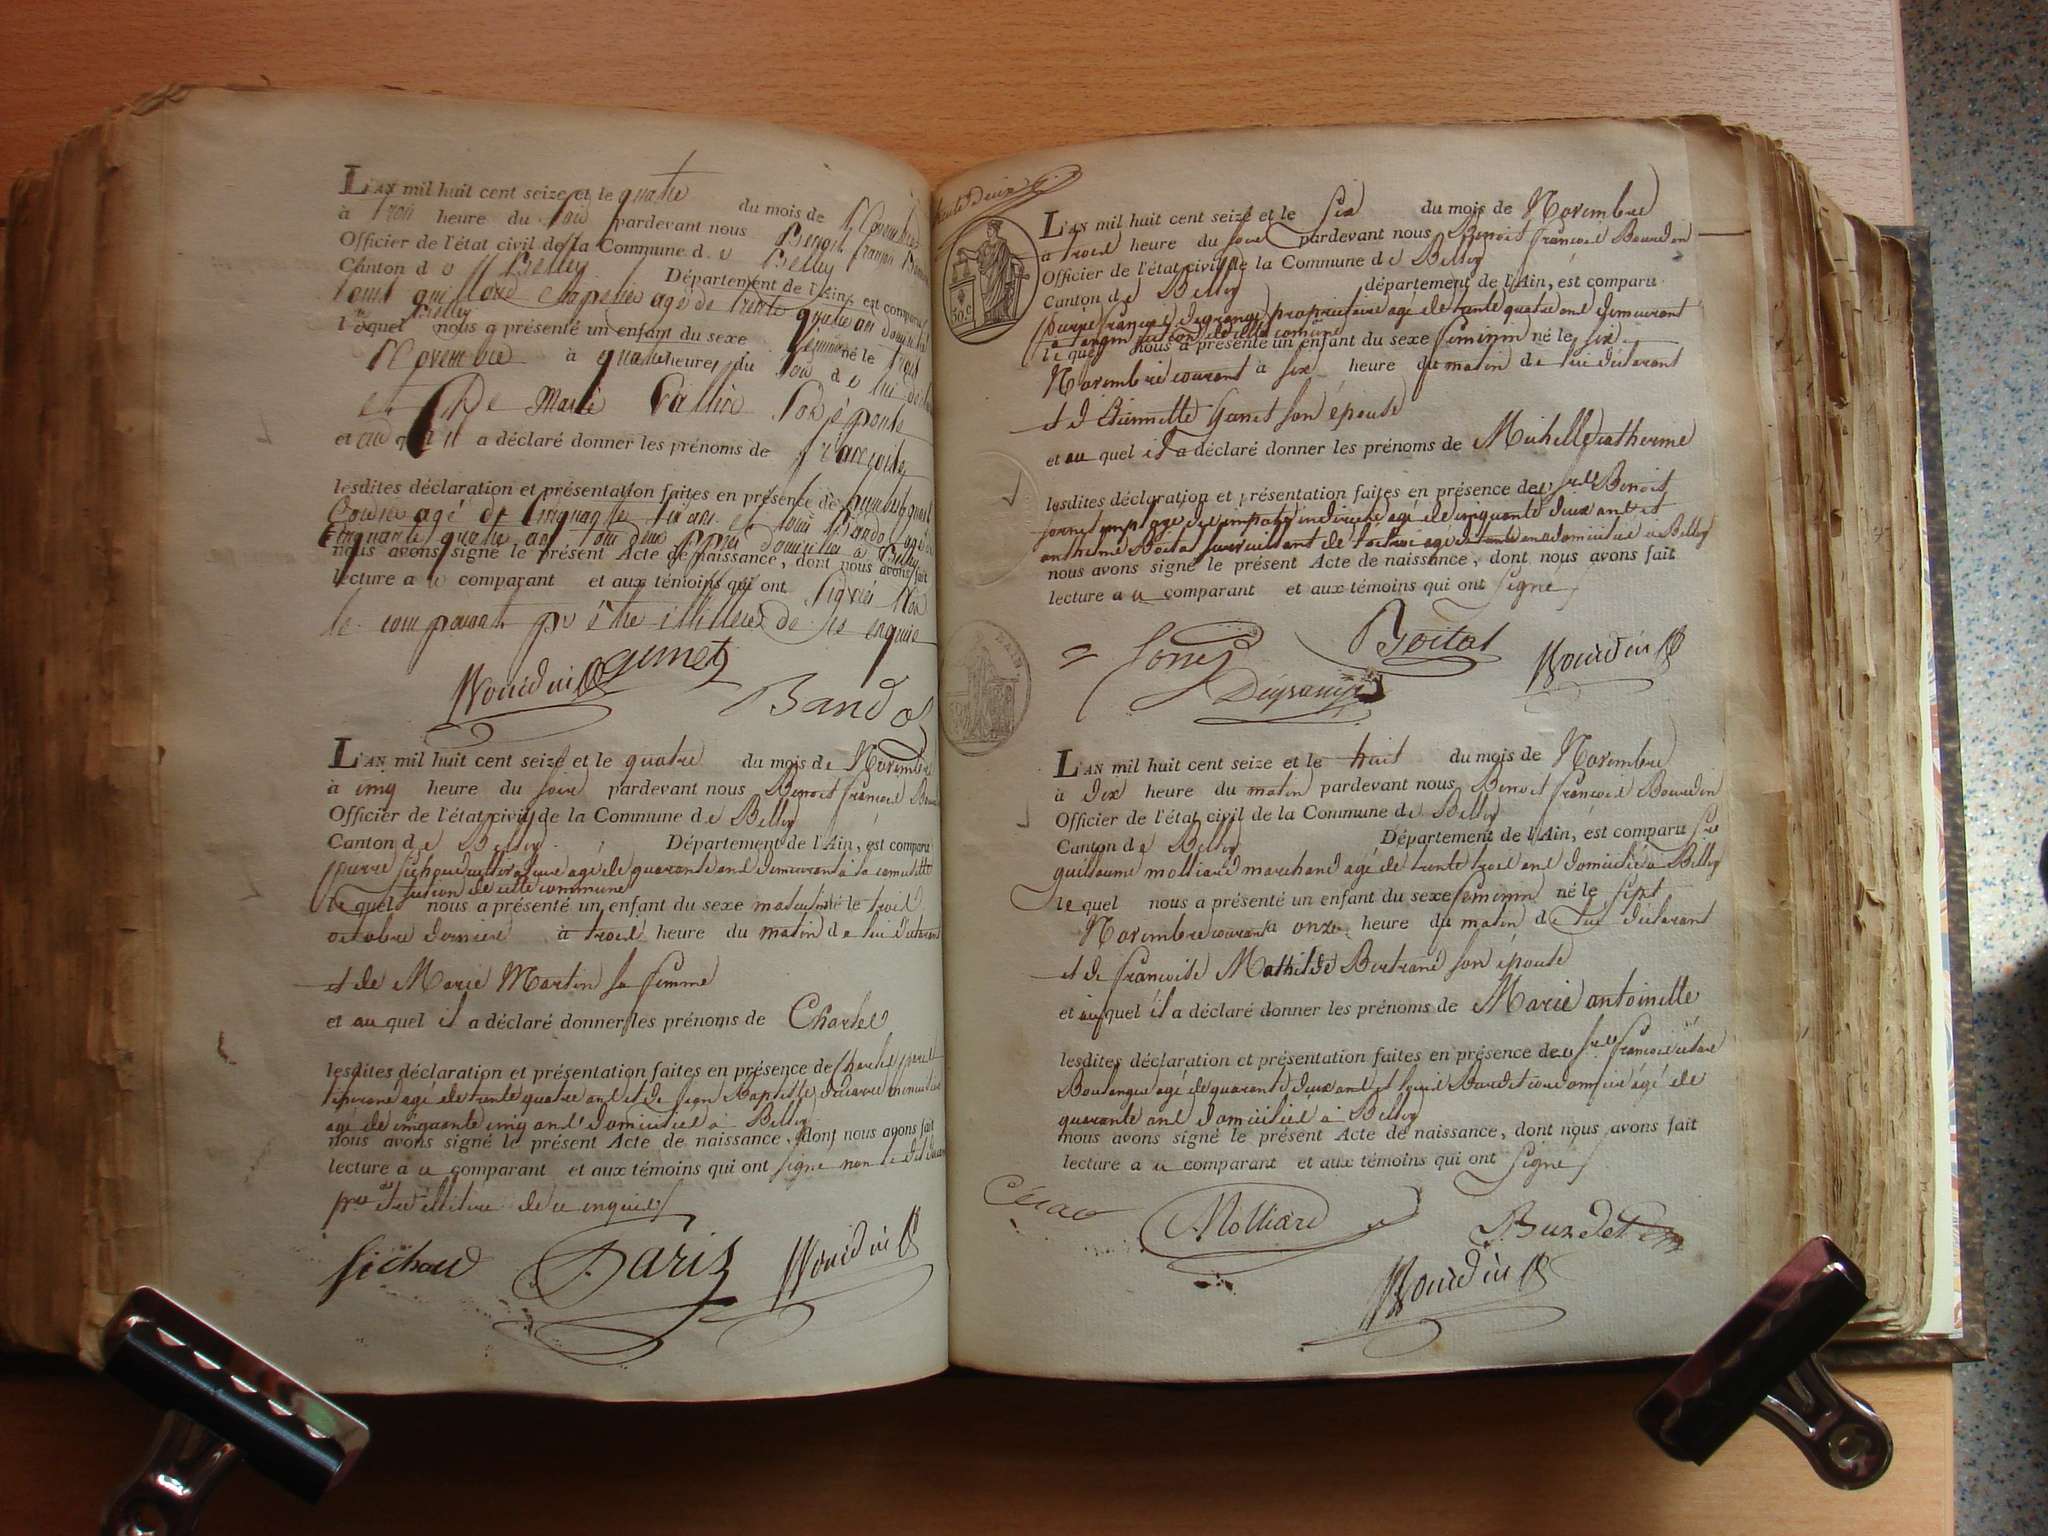 L'AN mil huit cent seize et le quatre du mois de Novembre
à trois heure du soir pardevant nous Benoit françois
Officier de l'état civil de la Commune de Belley
Canton de Belley Département de l'Ain, est comparu
agé de trente quatre an
Belley
lequel nous a présenté un enfant du sexe né le trois
Novembre à quatre heure du soir de lui
et de Marie son épouse
et au quel il a déclaré donner les prénoms de françoise
lesdites déclaration et présentation faites en présence de
agé de Cinquante six ans et louis Bando agé
Cinquante quatre an tous deux domicilié à Belley
nous avons signé le présent Acte de naissance, dont nous avons fait
lecture a u comparant et aux témoins qui ont signés non
le comparant pr être illiteré de ce enquis
Bourdin genet
Bando
L'AN mil huit cent seize et le quatre du mois de Novembre
à cinq heure du soir pardevant nous Benoit françois
Officier de l'état civil de la Commune de Belley
Canton de Belley Département de l'Ain, est comparu
pierre agé de quarante ans demeurant à la
section de cette commune
le quel nous a présenté un enfant du sexe masculin né le trois
octobre dernier à trois heure du matin de lui déclarant
et de Marie Martin sa femme
et au quel il a déclaré donner les prénoms de Charles
lesdites déclaration et présentation faites en présence de Charles
agé de trente quatre ans et de jean Baptiste
agé de cinquante cinq ans domiciliés à Belley
nous avons signé le présent Acte de naissance, dont nous avons fait
lecture a u comparant et aux témoins qui ont signé non le
pour être illitere de ce enquis
sichoud Paris Bourdin
L'AN mil huit cent seize et le six du mois de Novembre
à trois heure du soir pardevant nous Benoit françois Bourdin
Officier de l'état civil de la Commune de Belley
Canton de Belley département de l'Ain, est comparu
pierre françois Degrange propriétaire agé de trente quatre ans demeurant
a section de cette comune
le quel nous a présenté un enfant du sexe feminin né le six
Novembre courant à six heure du matin de lui déclarant
et d Etiennette son épouse
et au quel il a déclaré donner les prénoms de Michelle Catherine
lesdites déclaration et présentation faites en présence de srs Benoit
agé de cinquante deux ans et
anthelme Boitat surveillant de l'octroi agé de ans domicilié à Belley
nous avons signé le présent Acte de naissance, dont nous avons fait
lecture a u comparant et aux témoins qui ont signé
Boitat Bourdin
Degrange
L'AN mil huit cent seize et le huit du mois de Novembre
à dix heure du matin pardevant nous Benoit françois Bourdin
Officier de l'état civil de la Commune de Belley
Canton de Belley Département de l'Ain, est comparu sr
guillaume molliard marchand agé de trente trois ans domicilié à Belley
le quel nous a présenté un enfant du sexe feminin né le sept
Novembre courant à onze heure du matin de lui déclarant
et de françoise Mathilde Bertrand son épouse
et au quel il a déclaré donner les prénoms de Marie antoinette
lesdites déclaration et présentation faites en présence de srs françois
Boulanger agé de quarante deux ans et louis Burdet cordonnier agé de
quarante ans domiciliés à Belley
nous avons signé le présent Acte de naissance, dont nous avons fait
lecture a u comparant et aux témoins qui ont signé
Molliard Burdet
Bourdin